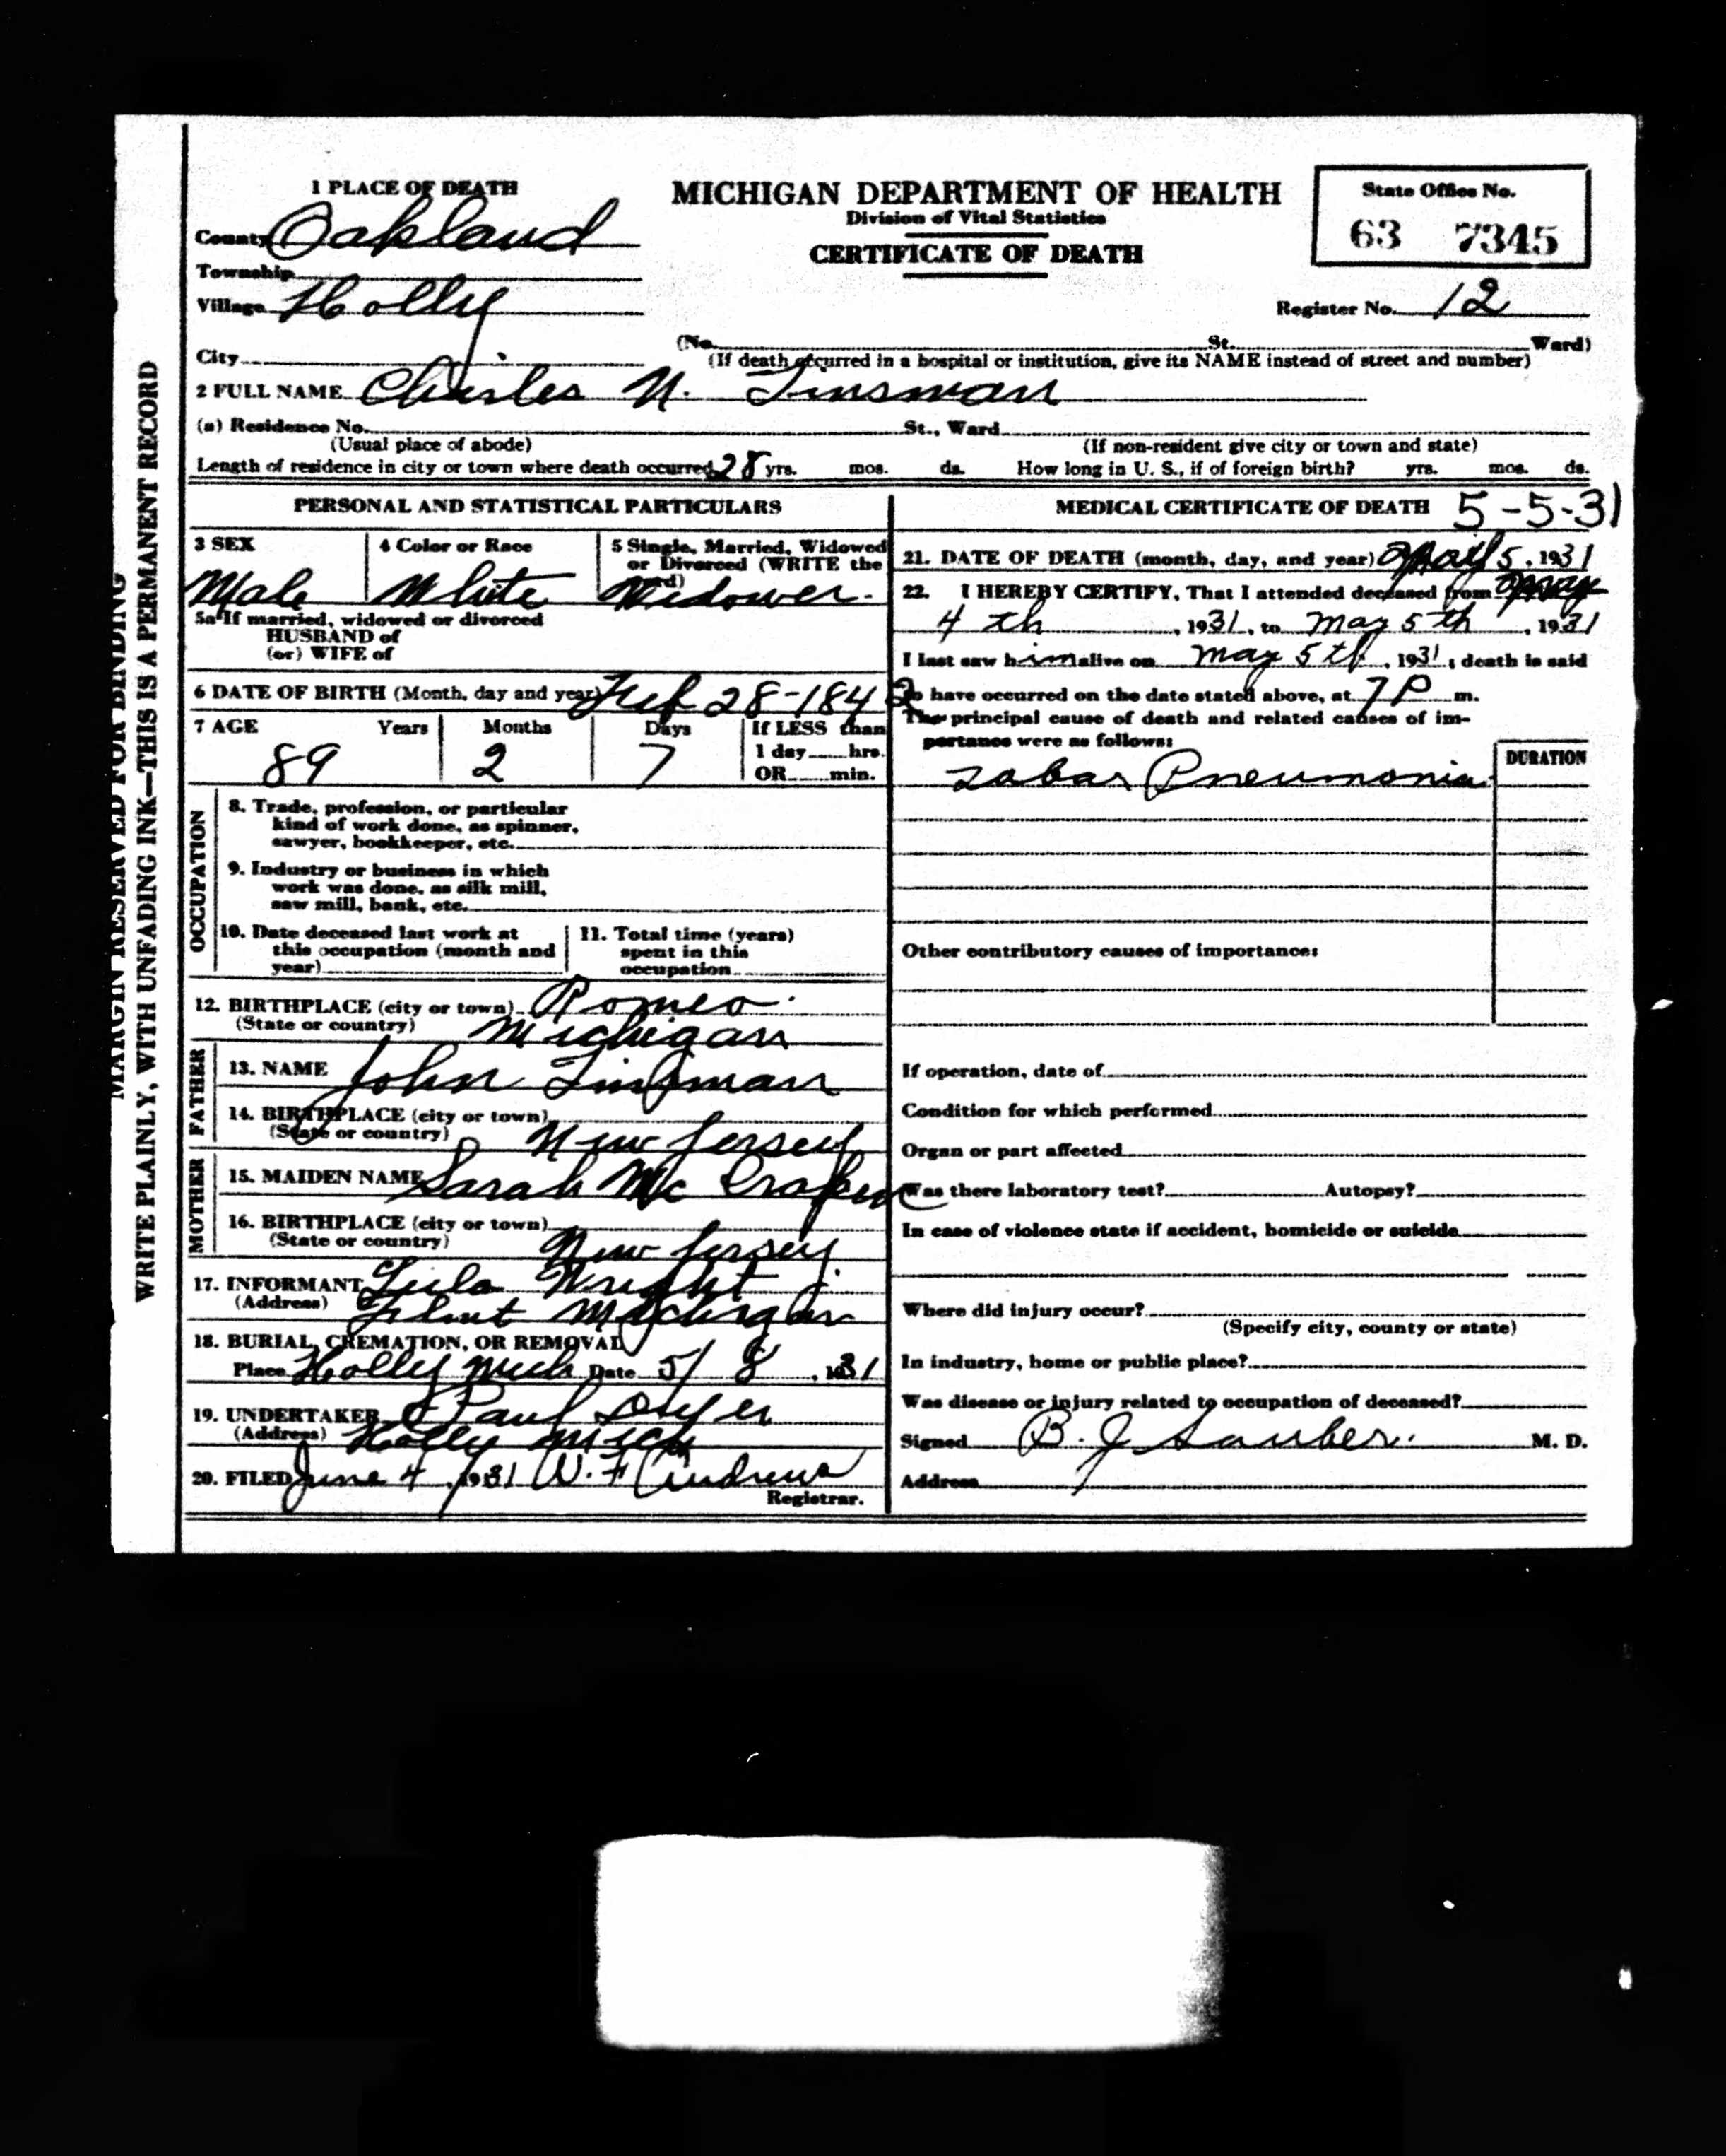 MARGIN RESERVED FOR BINDING
WRITE PLAINLY, WITH UNFADING INK—THIS IS A PERMANENT RECORD
1 PLACE OF DEATH
County Oakland
Township
Village Holly
City
MICHIGAN DEPARTMENT OF HEALTH
Division of Vital Statistics
CERTIFICATE OF DEATH
State Office No.
63 7345
Register No. 12
(No. St. Ward)
(If death occurred in a hospital or institution, give its NAME instead of street and number)
2 FULL NAME Charles N. Tinsman
(a) Residence No. St., Ward
(Usual place of abode) (If non-resident give city or town and state)
Length of residence in city or town where death occurred 28 yrs. mos. ds. How long in U. S., if of foreign birth? yrs. mos. ds.
PERSONAL AND STATISTICAL PARTICULARS
3 SEX
Male
4 Color or Race
White
5 Single, Married, Widowed
or Divorced (WRITE the
word)
Widower.
5a If married, widowed or divorced
HUSBAND of
(or) WIFE of
6 DATE OF BIRTH (Month, day and year) Feb 28-1842
7 AGE Years Months Days If LESS than
1 day hrs.
OR min.
89 2 7
OCCUPATION
8. Trade, profession, or particular
kind of work done, as spinner,
sawyer, bookkeeper, etc.
9. Industry or business in which
work was done, as silk mill,
saw mill, bank, etc.
10. Date deceased last work at
this occupation (month and
year)
11. Total time (years)
spent in this
occupation
12. BIRTHPLACE (city or town) Romeo
(State or country) Michigan
FATHER
13. NAME John Tinsman
14. BIRTHPLACE (city or town)
(State or country) New Jersey
MOTHER
15. MAIDEN NAME Sarah Mc
16. BIRTHPLACE (city or town)
(State or country) New Jersey
17. INFORMANT Lula Wright
(Address) Flint Michigan
18. BURIAL, CREMATION, OR REMOVAL
Place Holly Mich Date 5/ 8, 1931
19. UNDERTAKER Paul Dryer
(Address) Holly Mich
20. FILED June 4, 1931 W. F Andrews
Registrar.
MEDICAL CERTIFICATE OF DEATH 5-5-31
21. DATE OF DEATH (month, day, and year) May 5, 1931
22. I HEREBY CERTIFY, That I attended deceased from May
4 th, 1931, to May 5th, 1931
I last saw him alive on May 5th, 1931, death is said
to have occurred on the date stated above, at 7 P m.
The principal cause of death and related causes of im-
portance were as follows:
DURATION
Lobar Pneumonia
Other contributory causes of importance:
If operation, date of
Condition for which performed
Organ or part affected
Was there laboratory test? Autopsy?
In case of violence state if accident, homicide or suicide
Where did injury occur?
(Specify city, county or state)
In industry, home or public place?
Was disease or injury related to occupation of deceased?
Signed B. J Sauber. M. D.
Address